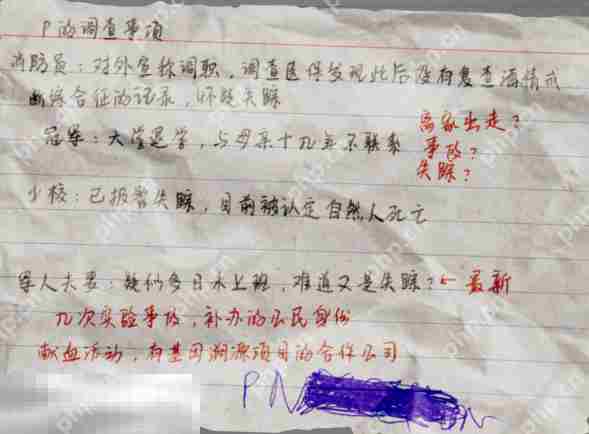 P的调查事项
消防员：对外宣称调职，调查医保发现此后没有复查酒精戒
断综合征的记录，怀疑失踪
冠军：大学退学，与母亲十几年不联系
离家出走？
事故？
失踪？
少校：已报警失踪，目前被认定自然人死亡
军人夫妻：疑似多日未上班，难道又是失踪？← 最新
几次实验事故，补办的公民身份
献血活动，有基因溯源项目的合作公司
PN
php.cn